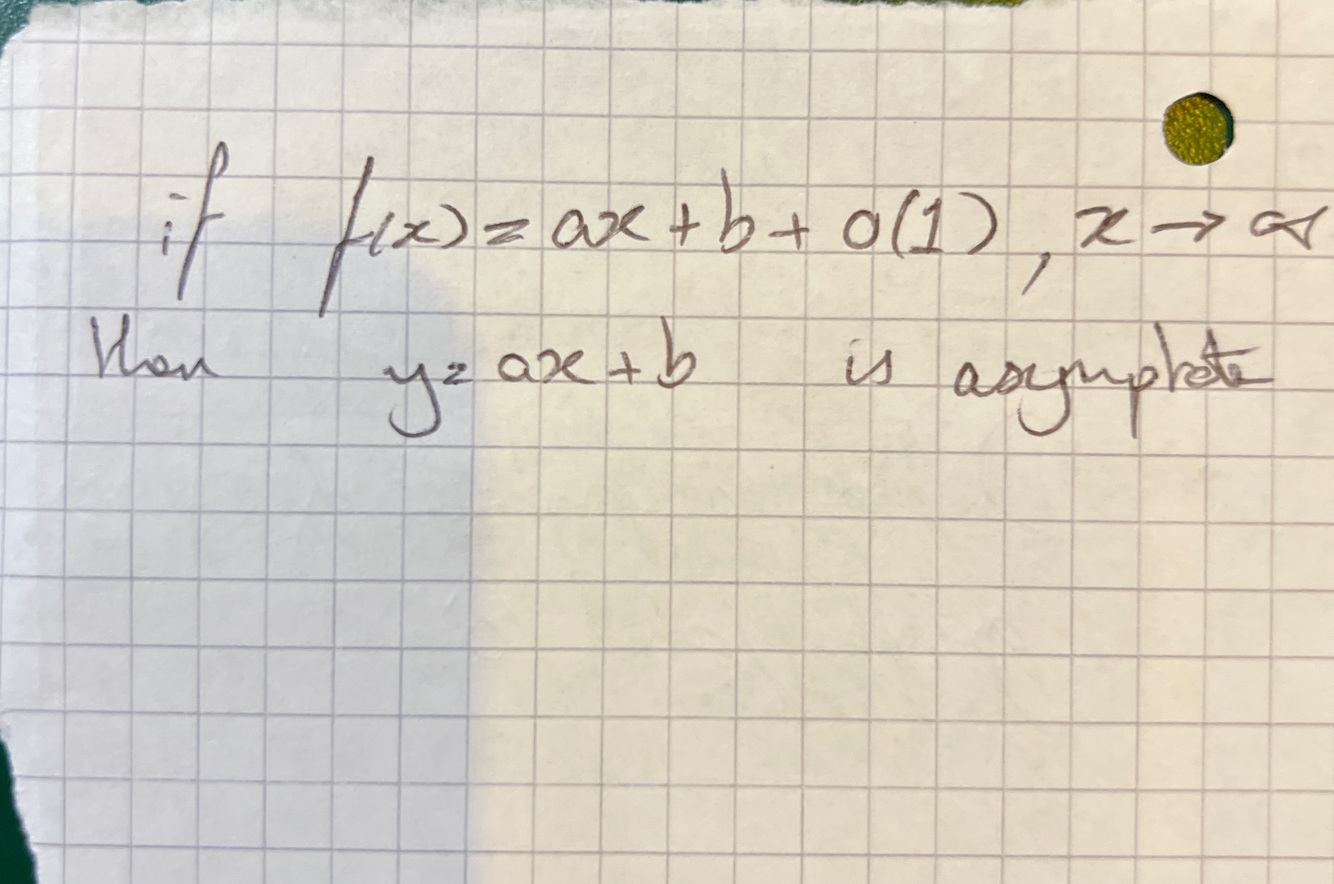 if f(x) = ax + b + o(1), x → ∞
then y = ax + b is asymptote